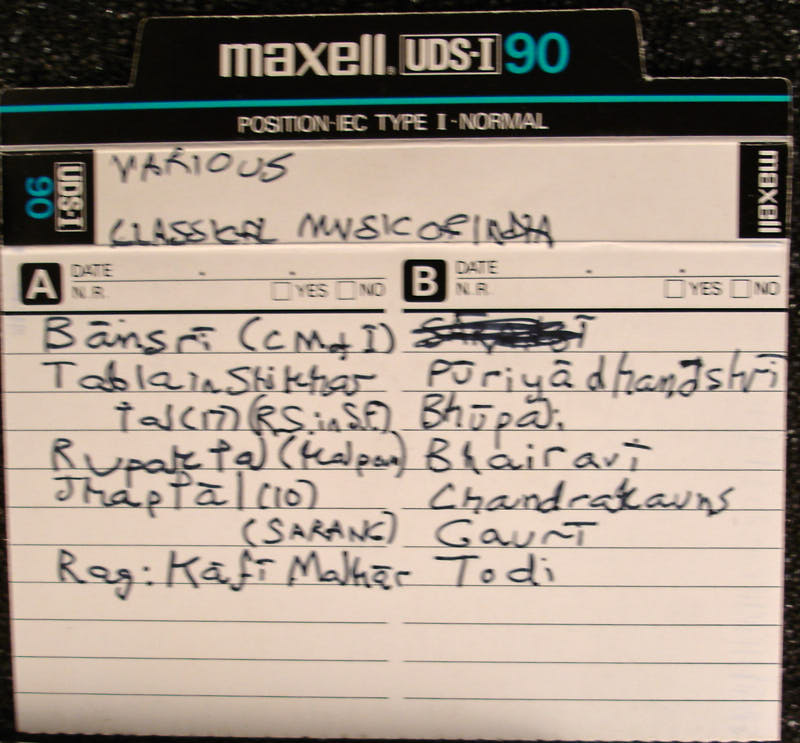 maxell. UDS-I 90
POSITION·IEC TYPE I·NORMAL
UDS-I 90
VARIOUS
CLASSICAL MUSIC OF INDIA
maxell
A DATE
N.R. YES NO
Bānsrī (CM of I)
Tabla in Shikhar
tal (17) (R.S. in S.F.)
Rupak tal (Kalpan)
Jhaptāl (10)
(SARANG)
Rag: Kāfī Malhār
B DATE
N.R. YES NO
Pūriyā dhanashrī
Bhūpali
Bhairavī
Chandrakauns
Gaurī
Todi